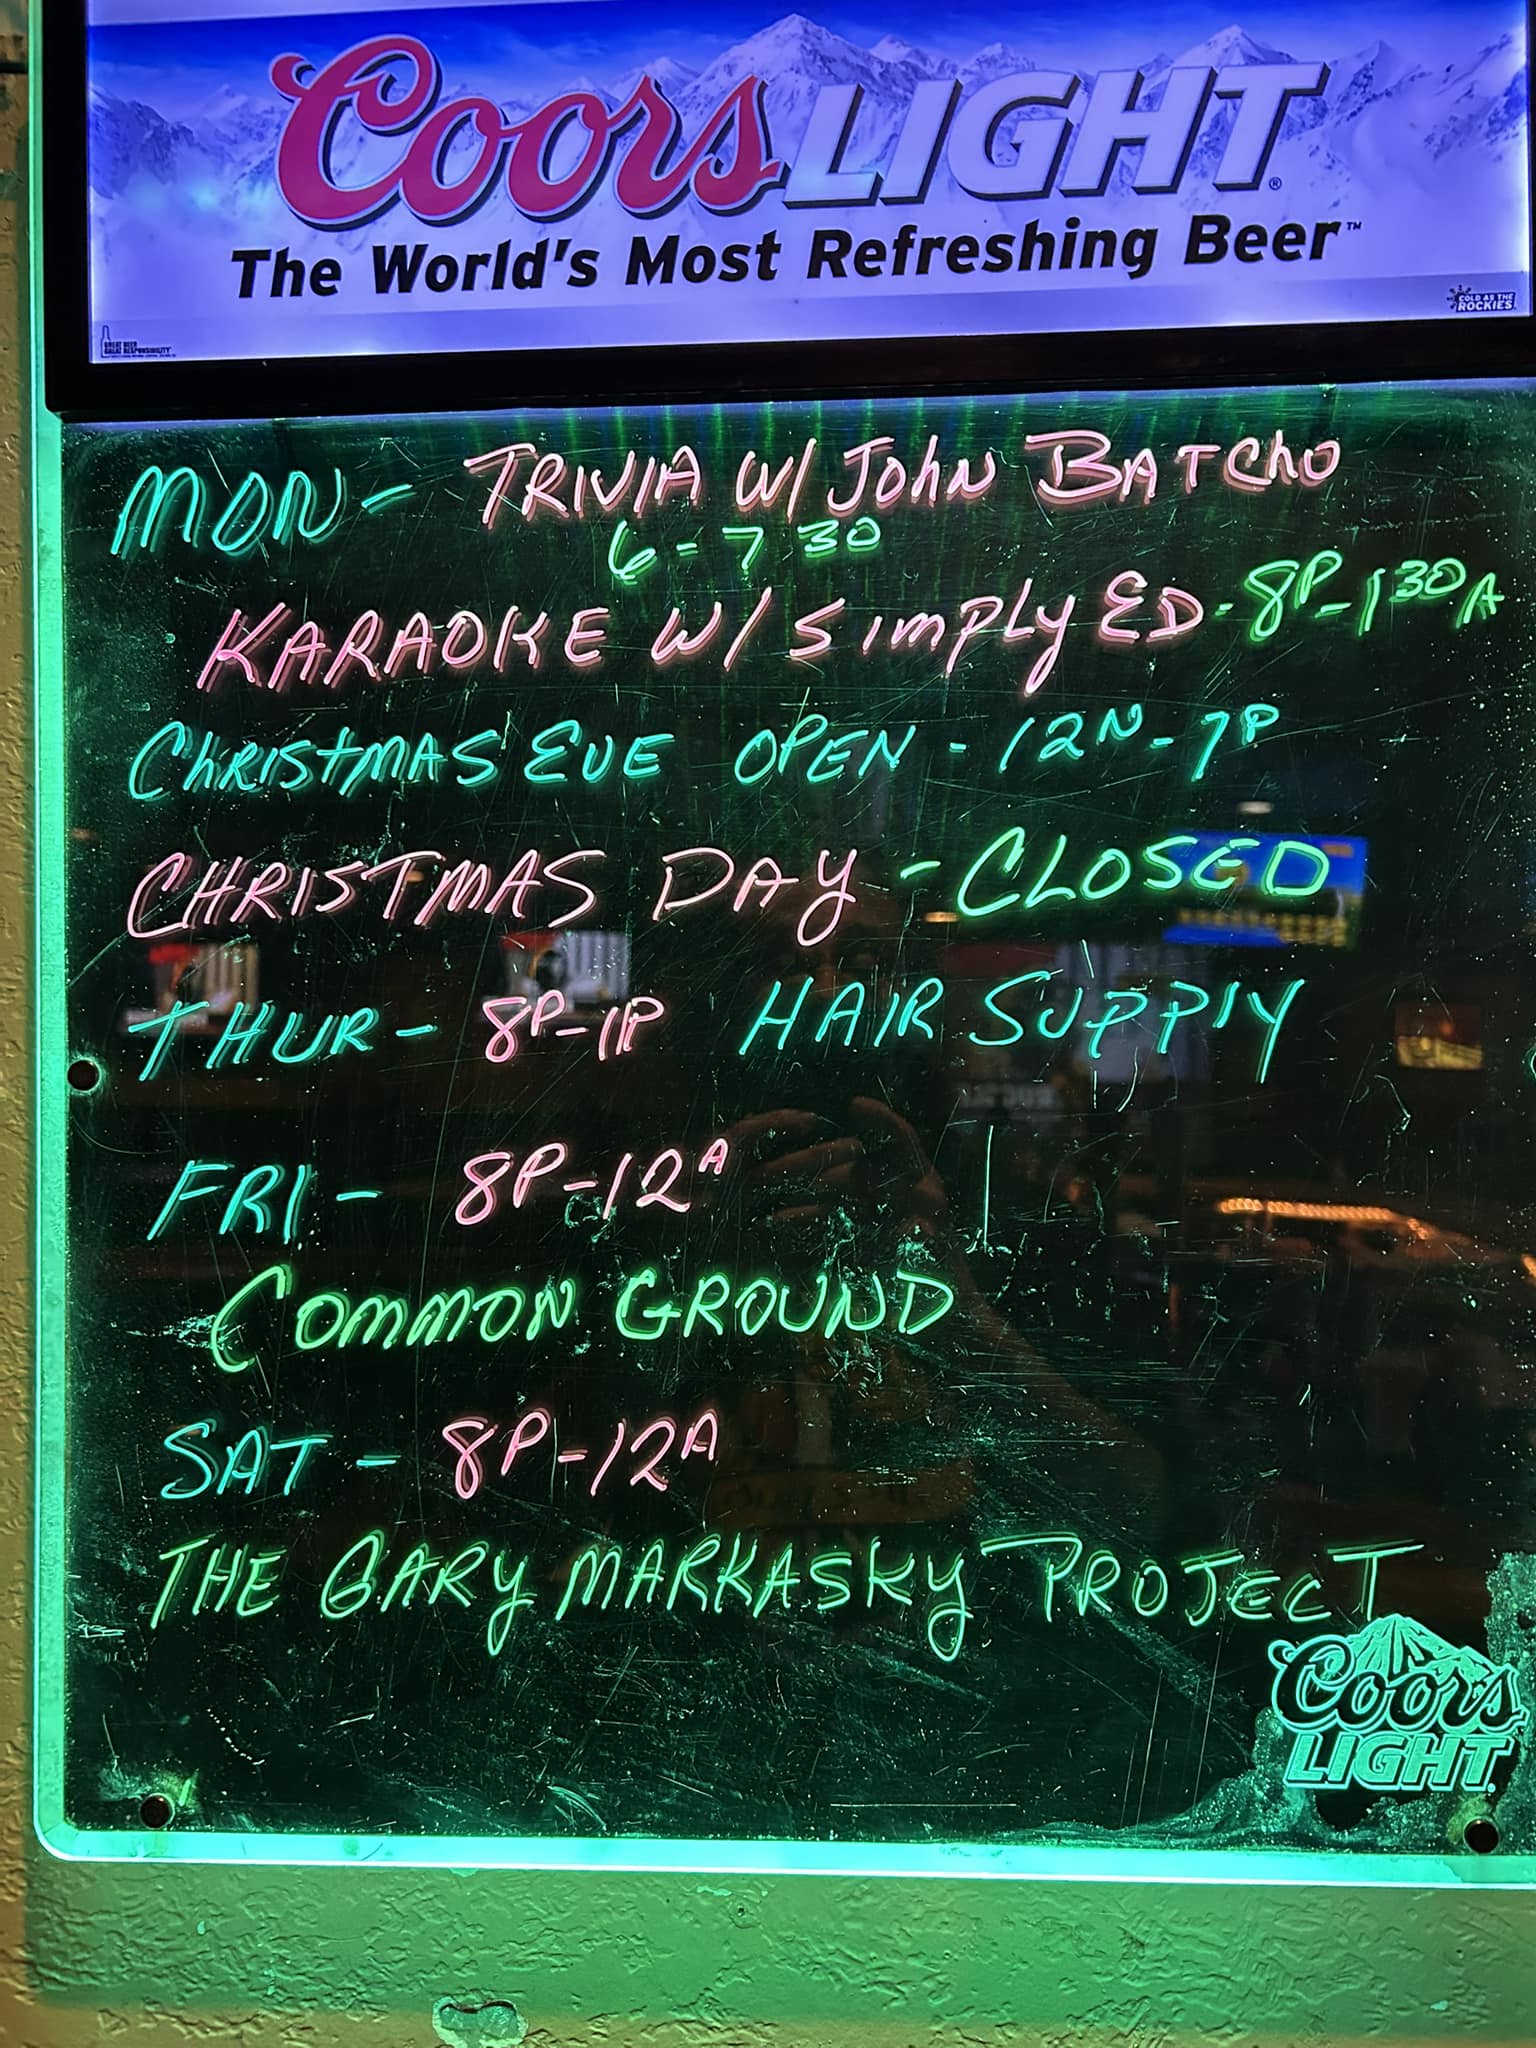 Coors LIGHT®
The World's Most Refreshing Beer™
GREAT BEER
GREAT RESPONSIBILITY
COLD AS THE
ROCKIES
MON - TRIVIA W/ John BATCho
6-7 30
KARAOKE W/ SImPLy ED - 8P-130A
ChRIStMAS EVE OPEN - 12N-7P
CHRISTMAS DAY - CLOSED
THUR - 8P-1P HAIR SUPPLY
FRI - 8P-12A
COMMON GROUND
SAT - 8P-12A
THE GARY MARKASKY PROJECT
Coors
LIGHT